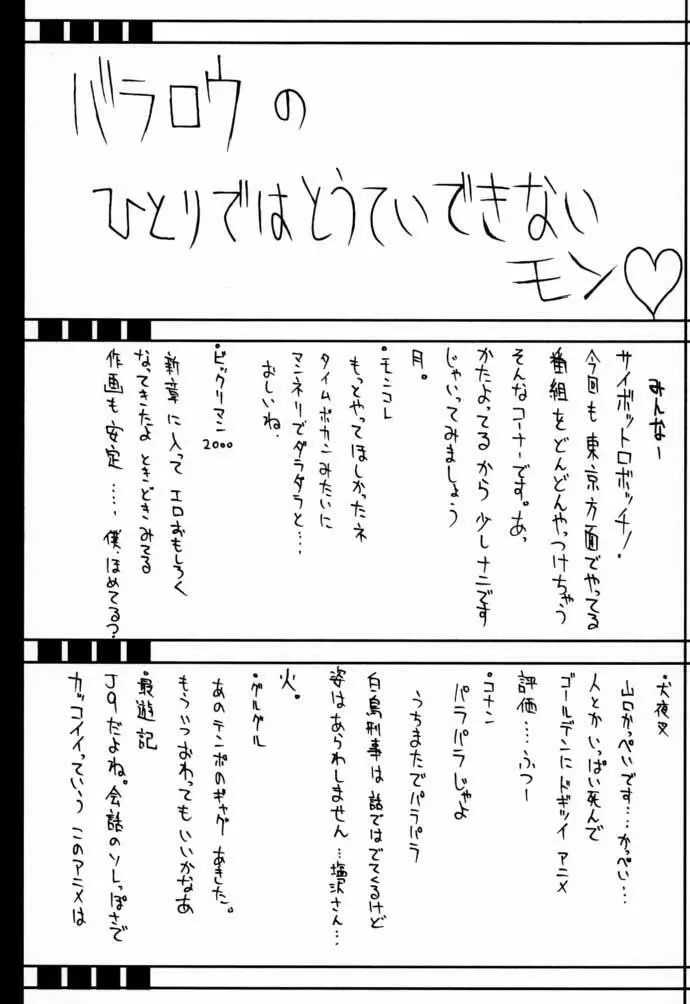 バラロウの
ひとりではとうていできない
モン♡
みんなー
サイボットロボッチ!
今回も東京方面でやってる
番組をどんどんやっつけちゃう
そんなコーナーです。あっ
かたよってるから少しナニです
じゃいってみましょう
月。
•モンコレ
もっとやってほしかったネ
タイムボカンみたいに
マンネリでダラダラと…
おしいね.
•ビックリマン2000
新章に入って エロおもしろく
なってきたよ ときどきみてる
作画も安定……僕、ほめてる?
•犬夜叉
山口かっぺいです…かっぺい…
人とかいっぱい死んで
ゴールデンにドギツイアニメ
評価….ふつー
•コナン
パラパラじゃよ
うちまたでパラパラ
白鳥刑事は話ではでてくるけど
姿はあらわしません…塩沢さん…
火。
•グルグル
あのテンポのギャグ あきた。
もういつおわってもいいかなあ
•最遊記
J9だよね。会話のソレっぽさで
カッコイイっていう このアニメは